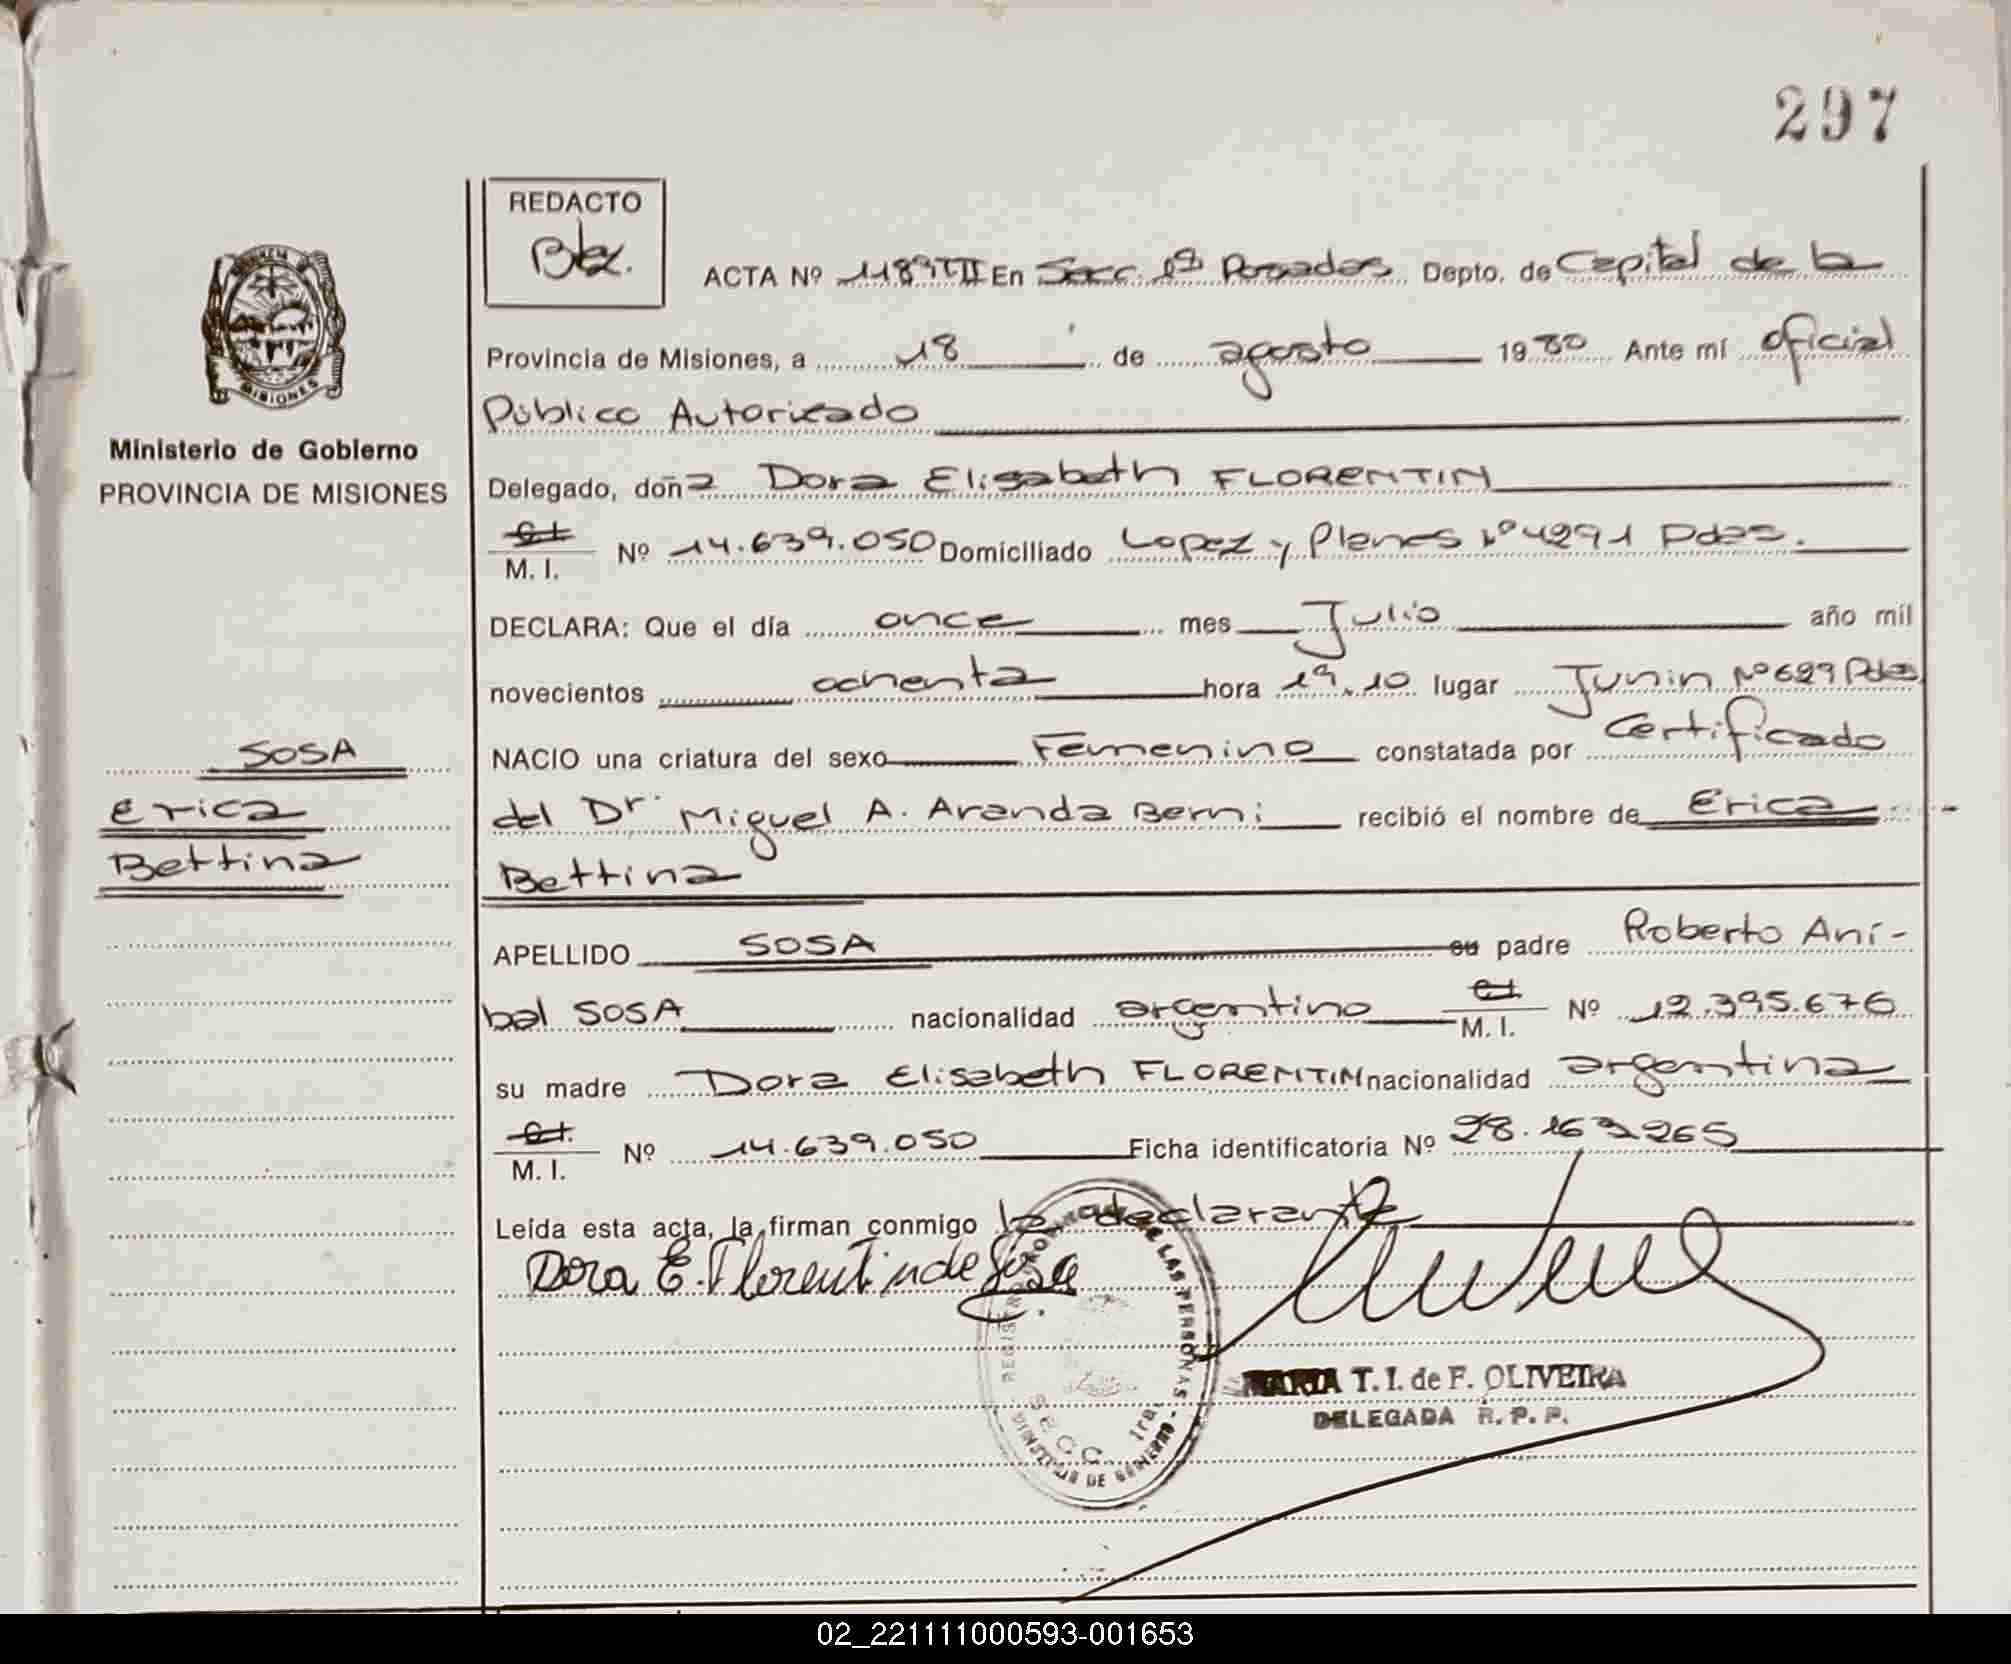 297
REDACTO
ACTA Nº 1189 TII En Secc. 1ª Posadas Depto. de Capital de la
Provincia de Misiones, a 18 de agosto 1980 Ante mí oficial
Público Autorizado
Ministerio de Gobierno
PROVINCIA DE MISIONES
Delegado, doña Dora Elisabeth FLORENTIN
C.I.
M. I. Nº 14.639.050 Domiciliado Lopez y Planes Nº 4291 Pdas.
DECLARA: Que el día once mes Julio año mil
novecientos ochenta hora 19.10 lugar Junin Nº 629 Pdas
NACIO una criatura del sexo Femenino constatada por Certificado
del Dr. Miguel A. Aranda Berni recibió el nombre de Erica
Bettina
SOSA
Erica
Bettina
APELLIDO SOSA su padre Roberto Aní-
bal SOSA nacionalidad argentino C.I. M. I. Nº 12.395.676
su madre Dora Elisabeth FLORENTIN nacionalidad argentina
C.I.
M. I. Nº 14.639.050 Ficha identificatoria Nº 28.163265
Leída esta acta, la firman conmigo la declarante
Dora E. Florentin de Sosa
MARIA T. I. de F. OLIVEIRA
DELEGADA R. P. P.
MISIONES
REGISTRO PROVINCIAL DE LAS PERSONAS
SECC. 1ra.
MINISTERIO DE GOBIERNO
02_221111000593-001653